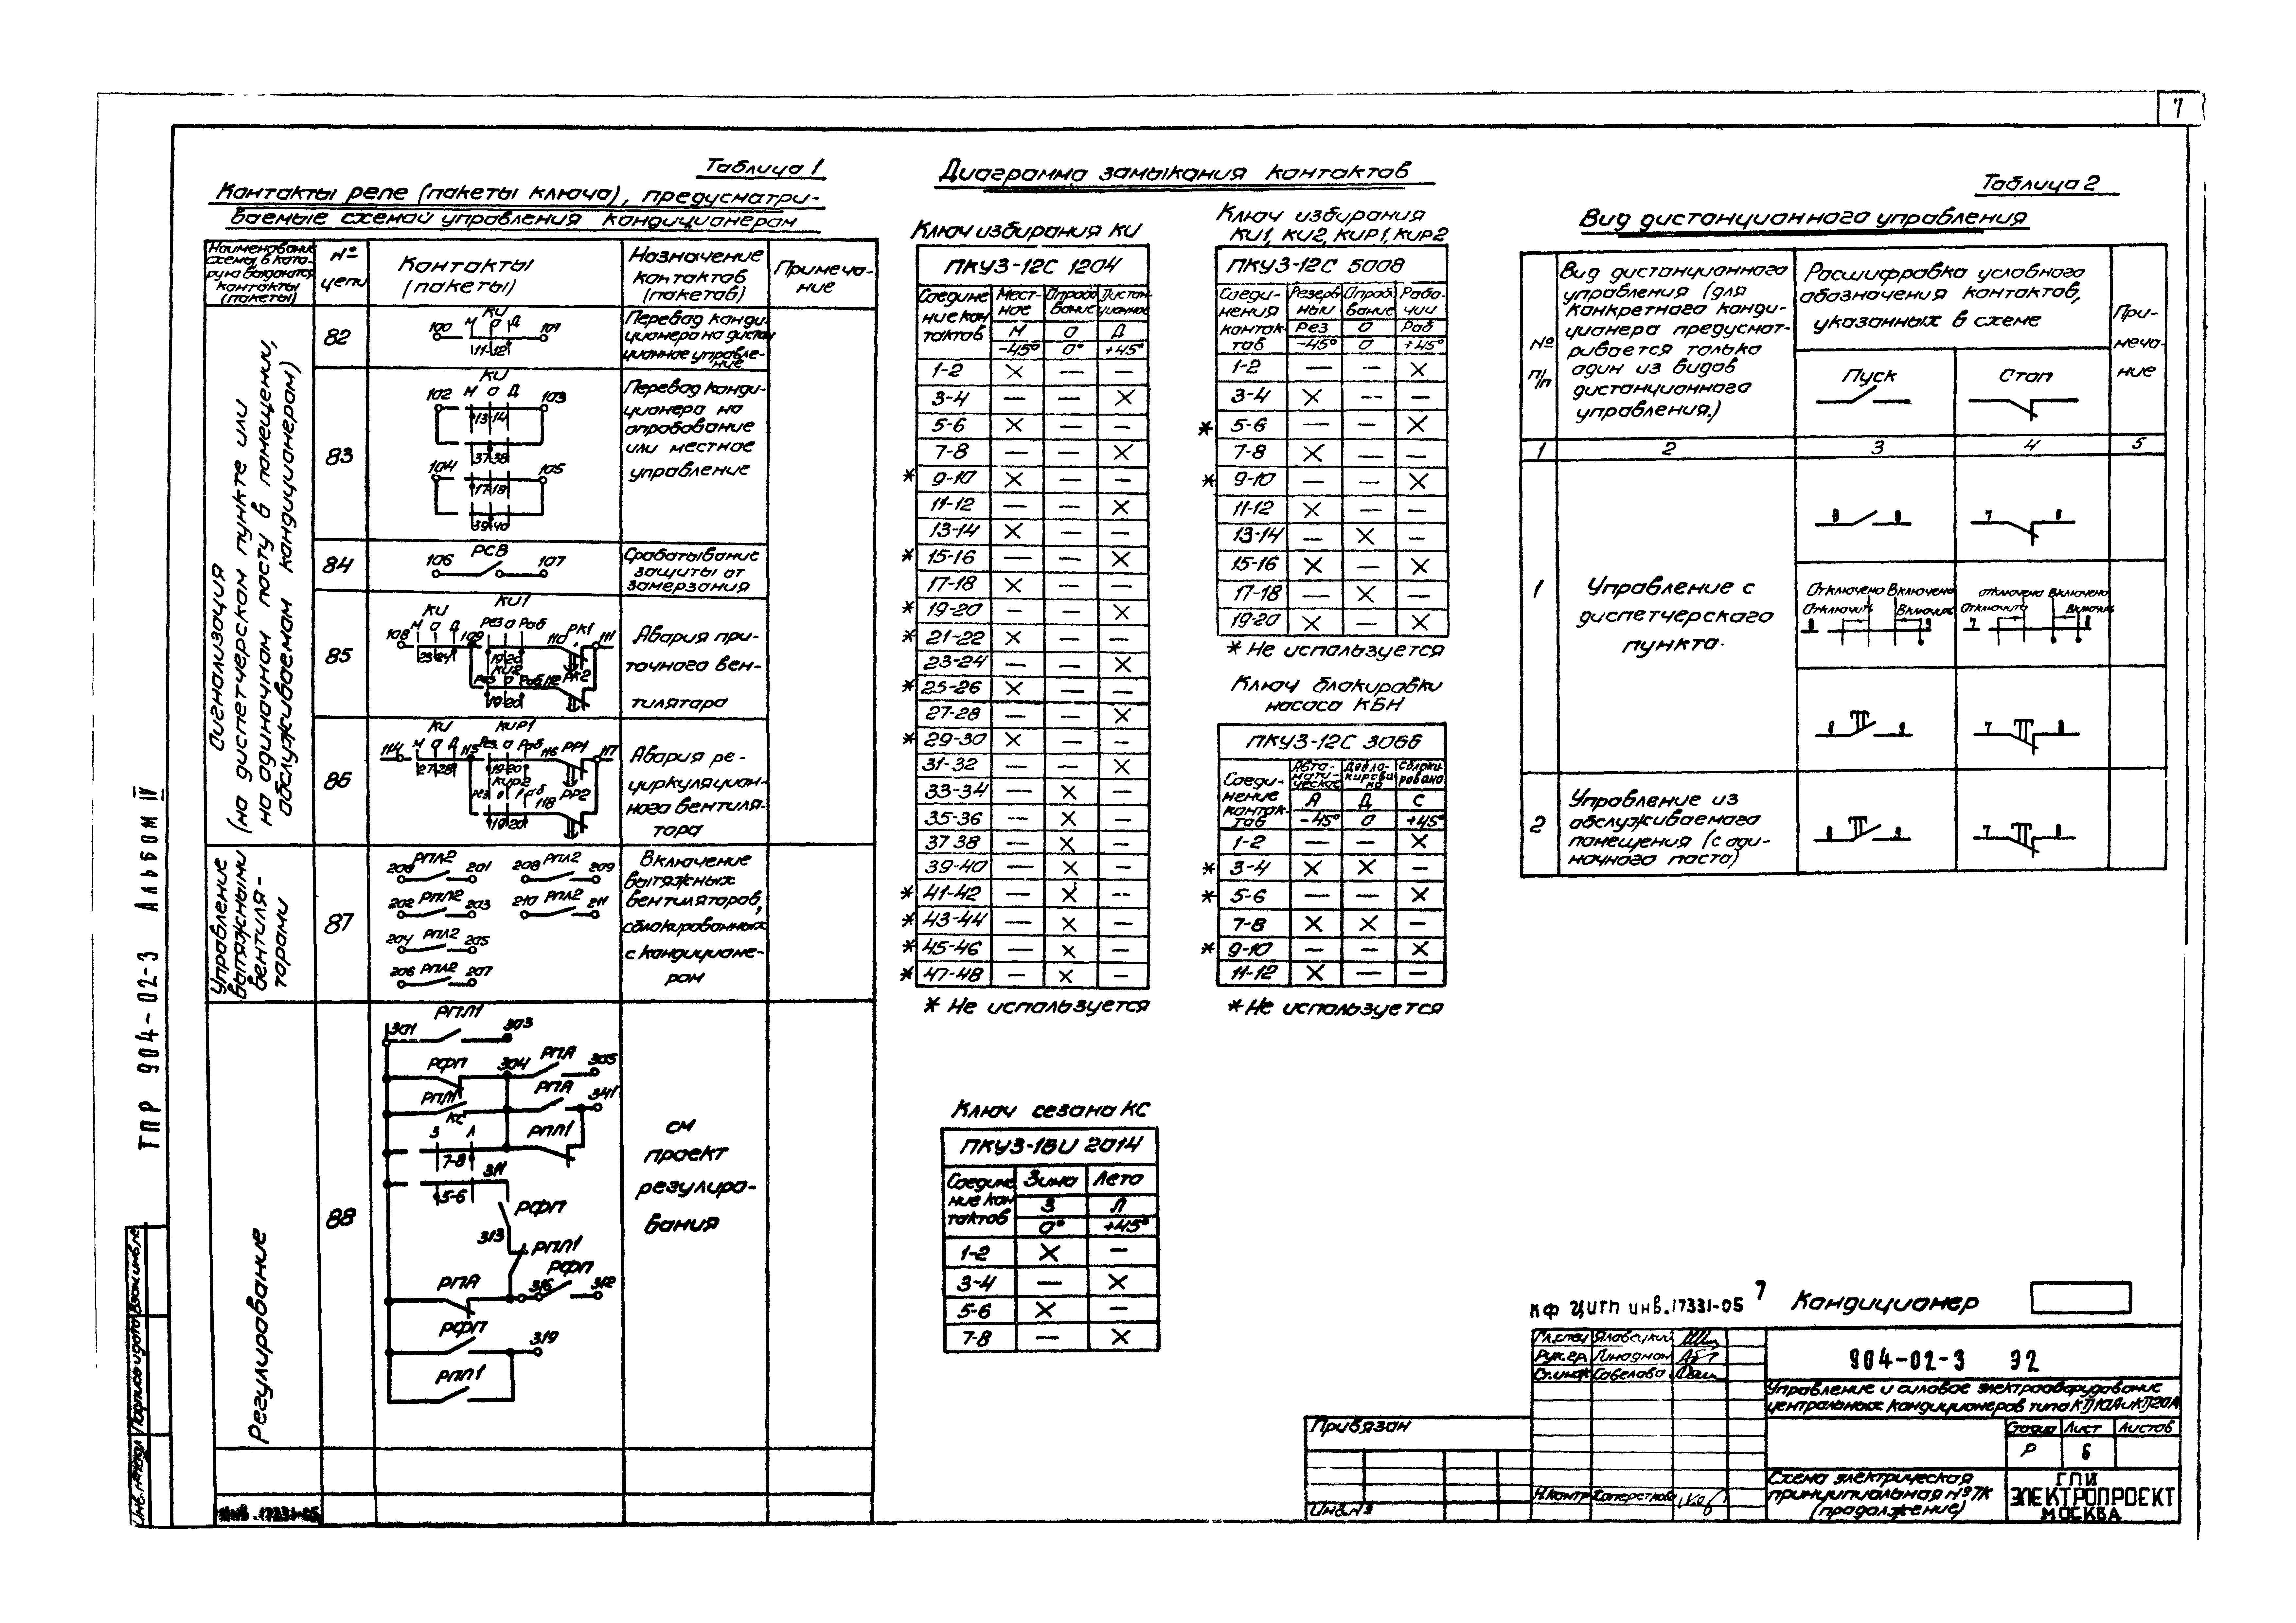 7
Таблица 1
Контакты реле (пакеты ключа), предусматри-
ваемые схемой управления кондиционером
Наименование схемы, в кото- рую вводятся контакты (пакеты)
№ цепи
Контакты (пакеты)
Назначение контактов (пакетов)
Примеча- ние
Сигнализация
(на диспетчерском пункте или
на одиночном посту в помещении,
обслуживаемом кондиционером)
82
КИ
100 М О Д 101
11-12
Перевод конди-
ционера на дистан
ционное управле-
ние
83
КИ
102 М О Д 103
13-14
37-38
104 105
17-18
39-40
Перевод конди-
ционера на
опробование
или местное
управление
84
106 РСВ 107
Срабатывание
защиты от
замерзания
85
КИ КИ1
108 М О Д 109 Рез О Раб 110 РК1 111
23-24 19-20
КИ2
Рез О Раб 112 РК2
19-20
Авария при-
точного вен-
тилятора
86
КИ КИР1
114 М О Д 115 Рез О Раб 116 РР1 117
27-28 19-20
КИР2
Рез О Раб 118 РР2
19-20
Авария ре-
циркуляцион-
ного вентиля-
тора
Управление
вытяжными
вентиля-
торами
87
200 РПЛ2 201 208 РПЛ2 209
202 РПЛ2 203 210 РПЛ2 211
204 РПЛ2 205
206 РПЛ2 207
Включение
вытяжных
вентиляторов,
сблокированных
с кондиционе-
ром
Регулирование
88
РПЛ1
301 303
РФП 304 РПА 305
РПЛ1 РПА 341
КС
З Л РПЛ1
7-8
311
5-6
РФП
313
РПЛ1
РПА РФП
316 312
РФП
319
РПЛ1
см
проект
регулиро-
вания
Диаграмма замыкания контактов
Ключ избирания КИ
ПКУ3-12С 1204
Соедине ние кон тактов
Мест- ное Опробо вание Дистан- ционное
М О Д
-45° 0° +45°
1-2 × — —
3-4 — — ×
5-6 × — —
7-8 — — ×
* 9-10 × — —
11-12 — — ×
13-14 × — —
* 15-16 — — ×
17-18 × — —
* 19-20 — — ×
* 21-22 × — —
23-24 — — ×
* 25-26 × — —
27-28 — — ×
* 29-30 × — —
31-32 — — ×
33-34 — × —
35-36 — × —
37 38 — × —
39-40 — × —
* 41-42 — × —
* 43-44 — × —
* 45-46 — × —
* 47-48 — × —
* Не используется
Ключ сезона КС
ПКУ3-15И 2014
Соедине ние кон тактов
Зима Лето
З Л
0° +45°
1-2 × —
3-4 — ×
5-6 × —
7-8 — ×
Ключ избирания
КИ1, КИ2, КИР1, КИР2
ПКУ3-12С 5008
Соеди- нения контак- тов
Резерв ный Опроб вание Рабо- чий
Рез О Раб
-45° 0 +45°
1-2 — — ×
3-4 × — —
* 5-6 — — ×
7-8 × — —
* 9-10 — — ×
11-12 × — —
13-14 — × —
15-16 × — ×
17-18 — × —
19-20 × — ×
* Не используется
Ключ блокировки
насоса КБН
ПКУ3-12С 3066
Соеди- нение контак- тов
Авто- мати- ческое Дебло- кирова но Сблоки ровано
А Д С
-45° 0 +45°
1-2 — — ×
* 3-4 × × —
* 5-6 — — ×
7-8 × × —
* 9-10 — — ×
11-12 × — —
* Не используется
Таблица 2
Вид дистанционного управления
№ п/п
Вид дистанционного
управления (для
конкретного конди-
ционера предусмат-
ривается только
один из видов
дистанционного
управления.)
Расшифровка условного
обозначения контактов,
указанных в схеме
Пуск Стоп
При- меча- ние
1 2 3 4 5
1
Управление с
диспетчерского
пункта.
8 9 7 8
Отключено Включено отключено Включено
Отключить Включить Отключить Включить
8 9 7 8
8 9 7 8
2
Управление из
обслуживаемого
помещения (с оди-
ночного поста)
8 9 7 8
КФ ЦИТП инв.17331-05 7
Кондиционер
Гл.спец Яловецкий
Рук.гр.
Ст.инж Савелова
Н.контр
904-02-3 Э2
Управление и силовое электрооборудование
центральных кондиционеров типа КТ10А и КТ20А
Стадия Лист Листов
Р 6
Схема электрическая
принципиальная №7К
(продолжение)
ГПИ
ЭЛЕКТРОПРОЕКТ
МОСКВА
Привязан
Инв.№
ТПР 904-02-3 Альбом IV
Инв.№подл. Подпись и дата Взам.инв.№
Инв. 17331-05